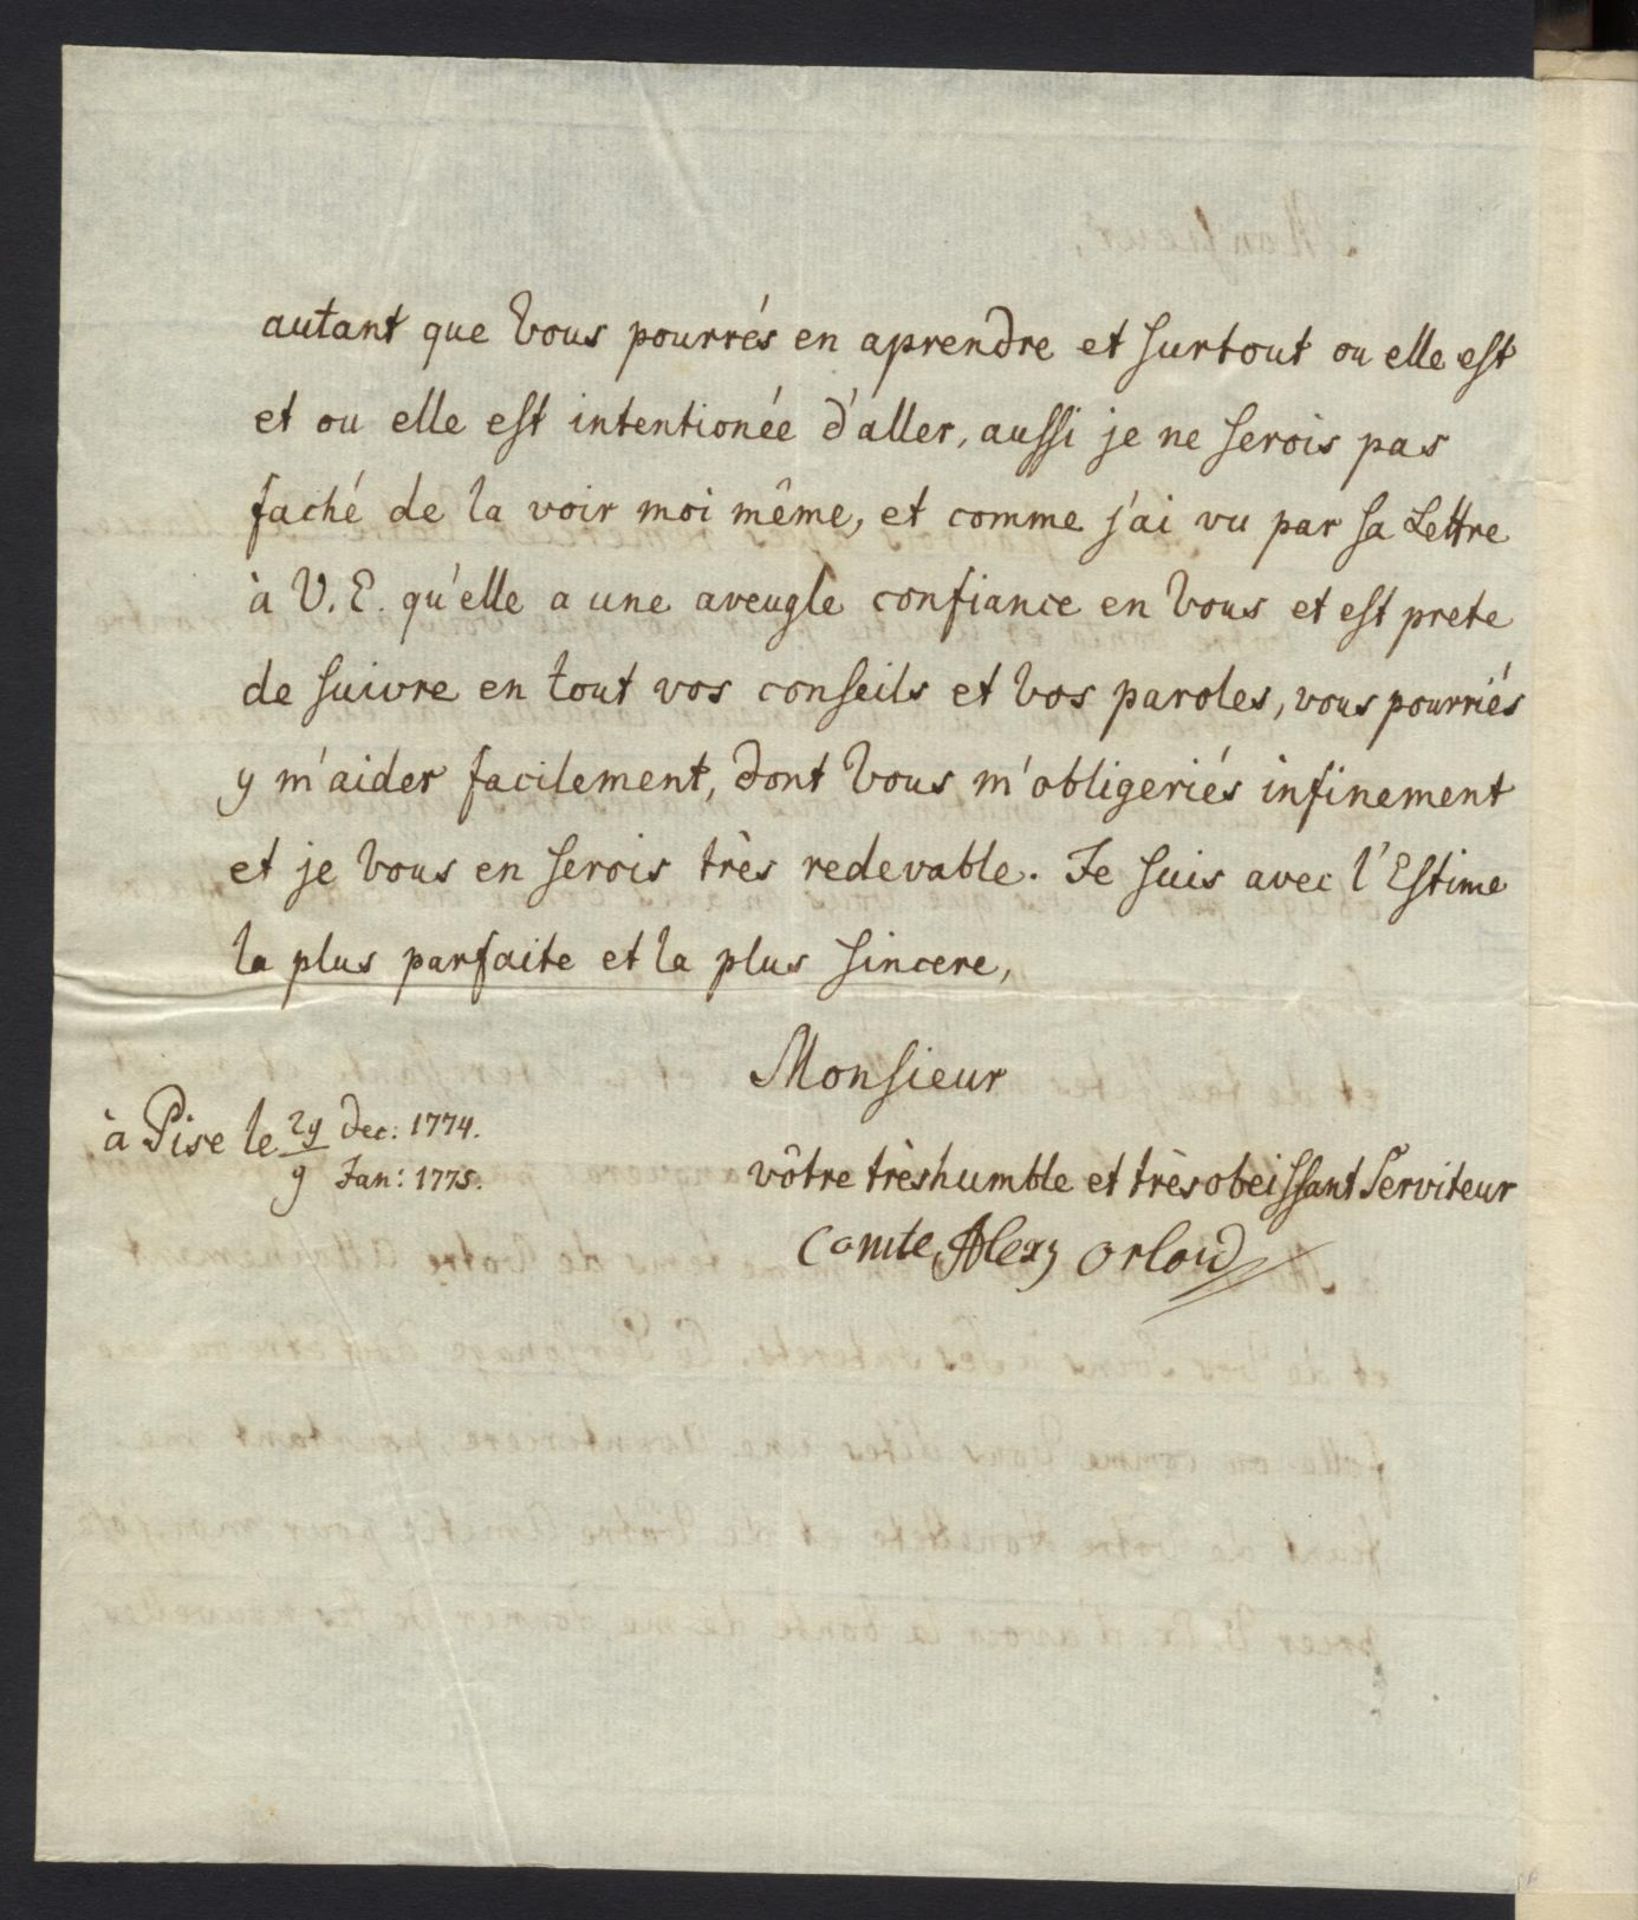 autant que Vous pourrés en aprendre et surtout ou elle est
et ou elle est intentionée d'aller, aussi je ne serois pas
faché de la voir moi même, et comme j'ai vu par sa Lettre
à V. E. qu'elle a une aveugle confiance en Vous et est prete
de suivre en tout vos conseils et Vos paroles, vous pourriés
y m'aider facilement, dont Vous m'obligeriés infinement
et je Vous en serois très redevable. Je suis avec l'Estime
la plus parfaite et la plus sincere,
Monsieur
à Pise le 29 Dec: 1774.
9 Jan: 1775.
vôtre trèshumble et trèsobeissant Serviteur
Comte Alexy Orlow